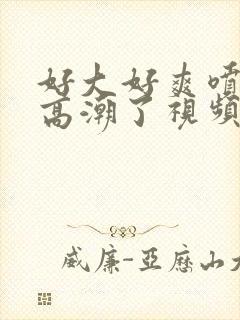 好大好爽噴
高潮了視頻
威廉-亞歷山大